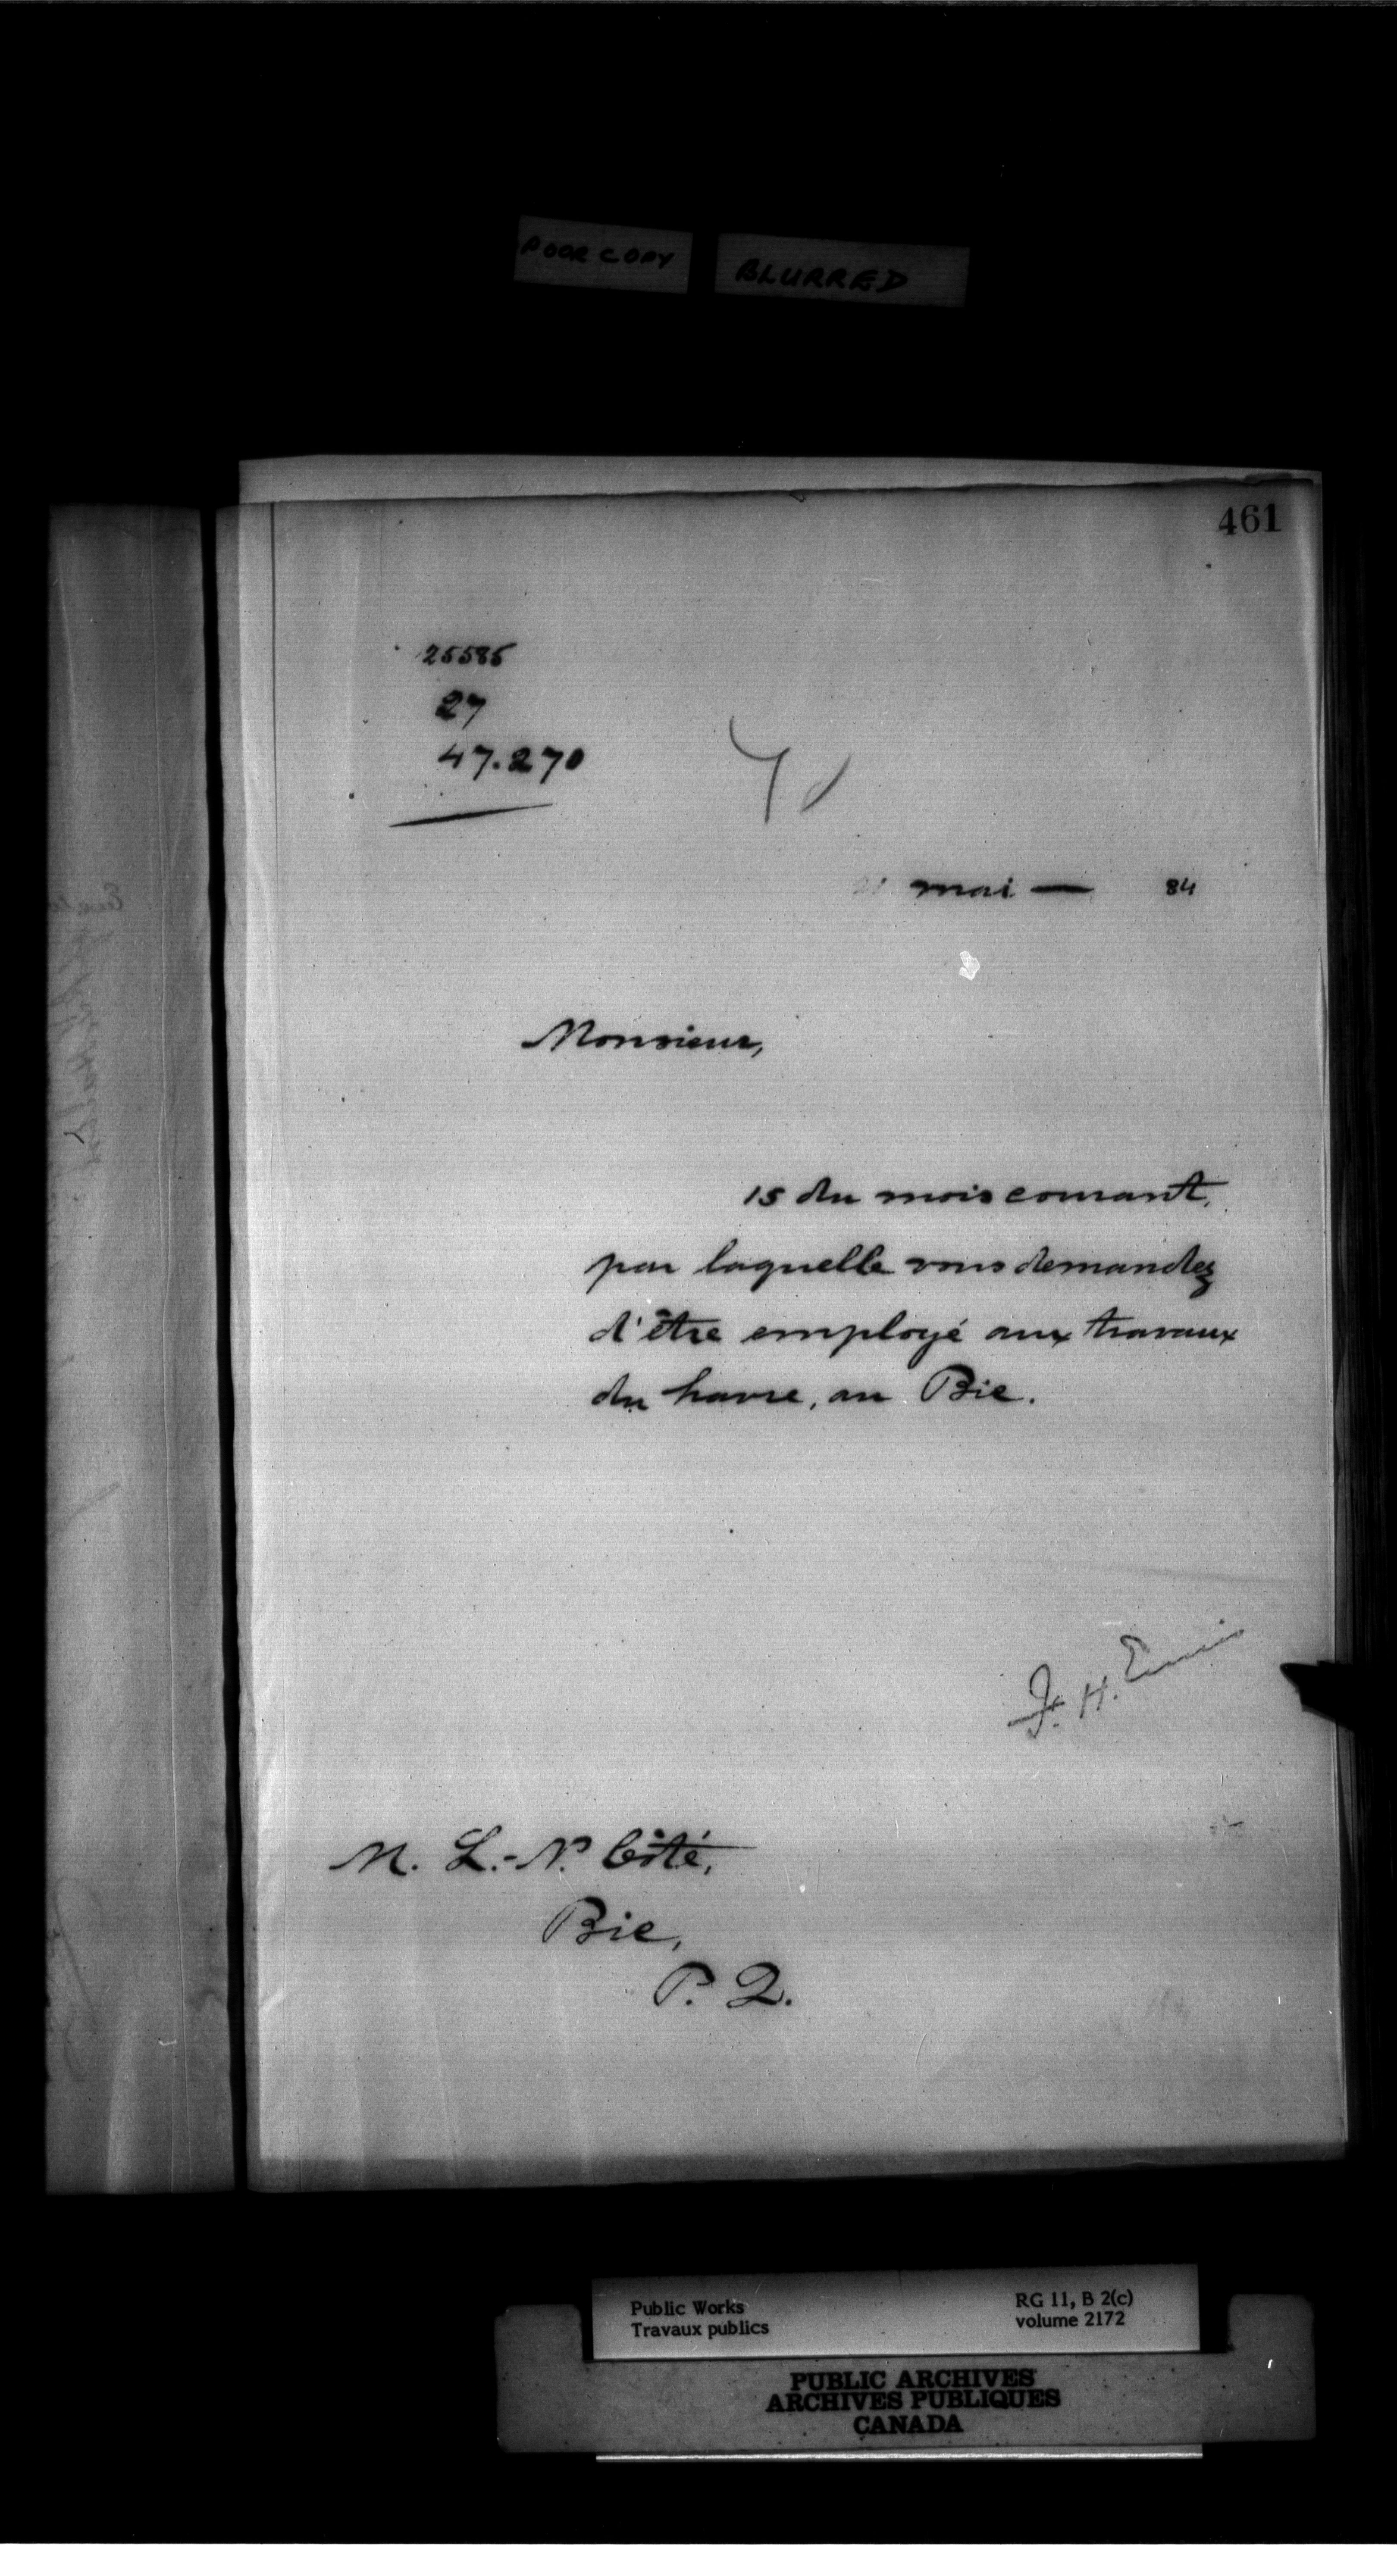 POOR COPY
BLURRED
461
25585
27
47.270
mai — 84
Monsieur,
15 du mois courant,
par laquelle vous demandez
d'être employé aux travaux
du havre, au Bic.
F. H. Ennis
M. L.-N. Côté,
Bic,
P. Q.
Public Works
Travaux publics
RG 11, B 2(c)
volume 2172
PUBLIC ARCHIVES
ARCHIVES PUBLIQUES
CANADA